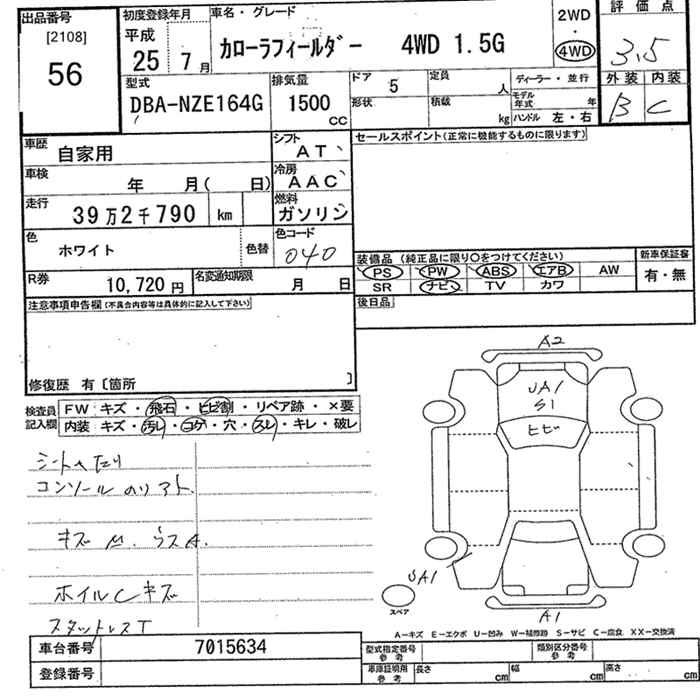 出品番号
[2108]
56
初度登録年月
平成
25年7月
車名・グレード
カローラフィールダー 4WD 1.5G
2WD
・
4WD
評価点
3.5
外装 内装
B C
型式
DBA-NZE164G
排気量
1500
CC
ドア 5
定員 人
形状
積載 kg
ディーラー・並行
モデル年式 年
ハンドル 左・右
車歴 自家用
シフト
AT
車検 年 月( 日)
冷房
AAC
走行 39万2千790 km
燃料
ガソリン
色 ホワイト
色替
色コード
040
R券 10,720円
名変通知期限 月 日
セールスポイント(正常に機能するものに限ります)
装備品(純正品に限り○をつけてください)
新車保証書
PS PW ABS エアB AW
有・無
SR ナビ TV カワ
後日品
注意事項申告欄(不具合内容等は具体的に記入して下さい)
修復歴 有〔箇所 〕
検査員記入欄
FW:キズ・飛石・ヒビ割・リペア跡・×要
内装:キズ・汚レ・コゲ・穴・スレ・キレ・破レ
シートへたり
コンソールのリアト
キズ
ホイルCキズ
スタットレスT
A2
UA1
S1
ヒビ
UA1
スペア
A1
A-キズ E-エクボ U-凹み W-補修跡 S-サビ C-腐食 XX-交換済
車台番号 7015634
登録番号
型式指定番号
参考
類別区分番号
参考
車庫証明用
参考
長さ cm 幅 cm 高さ cm